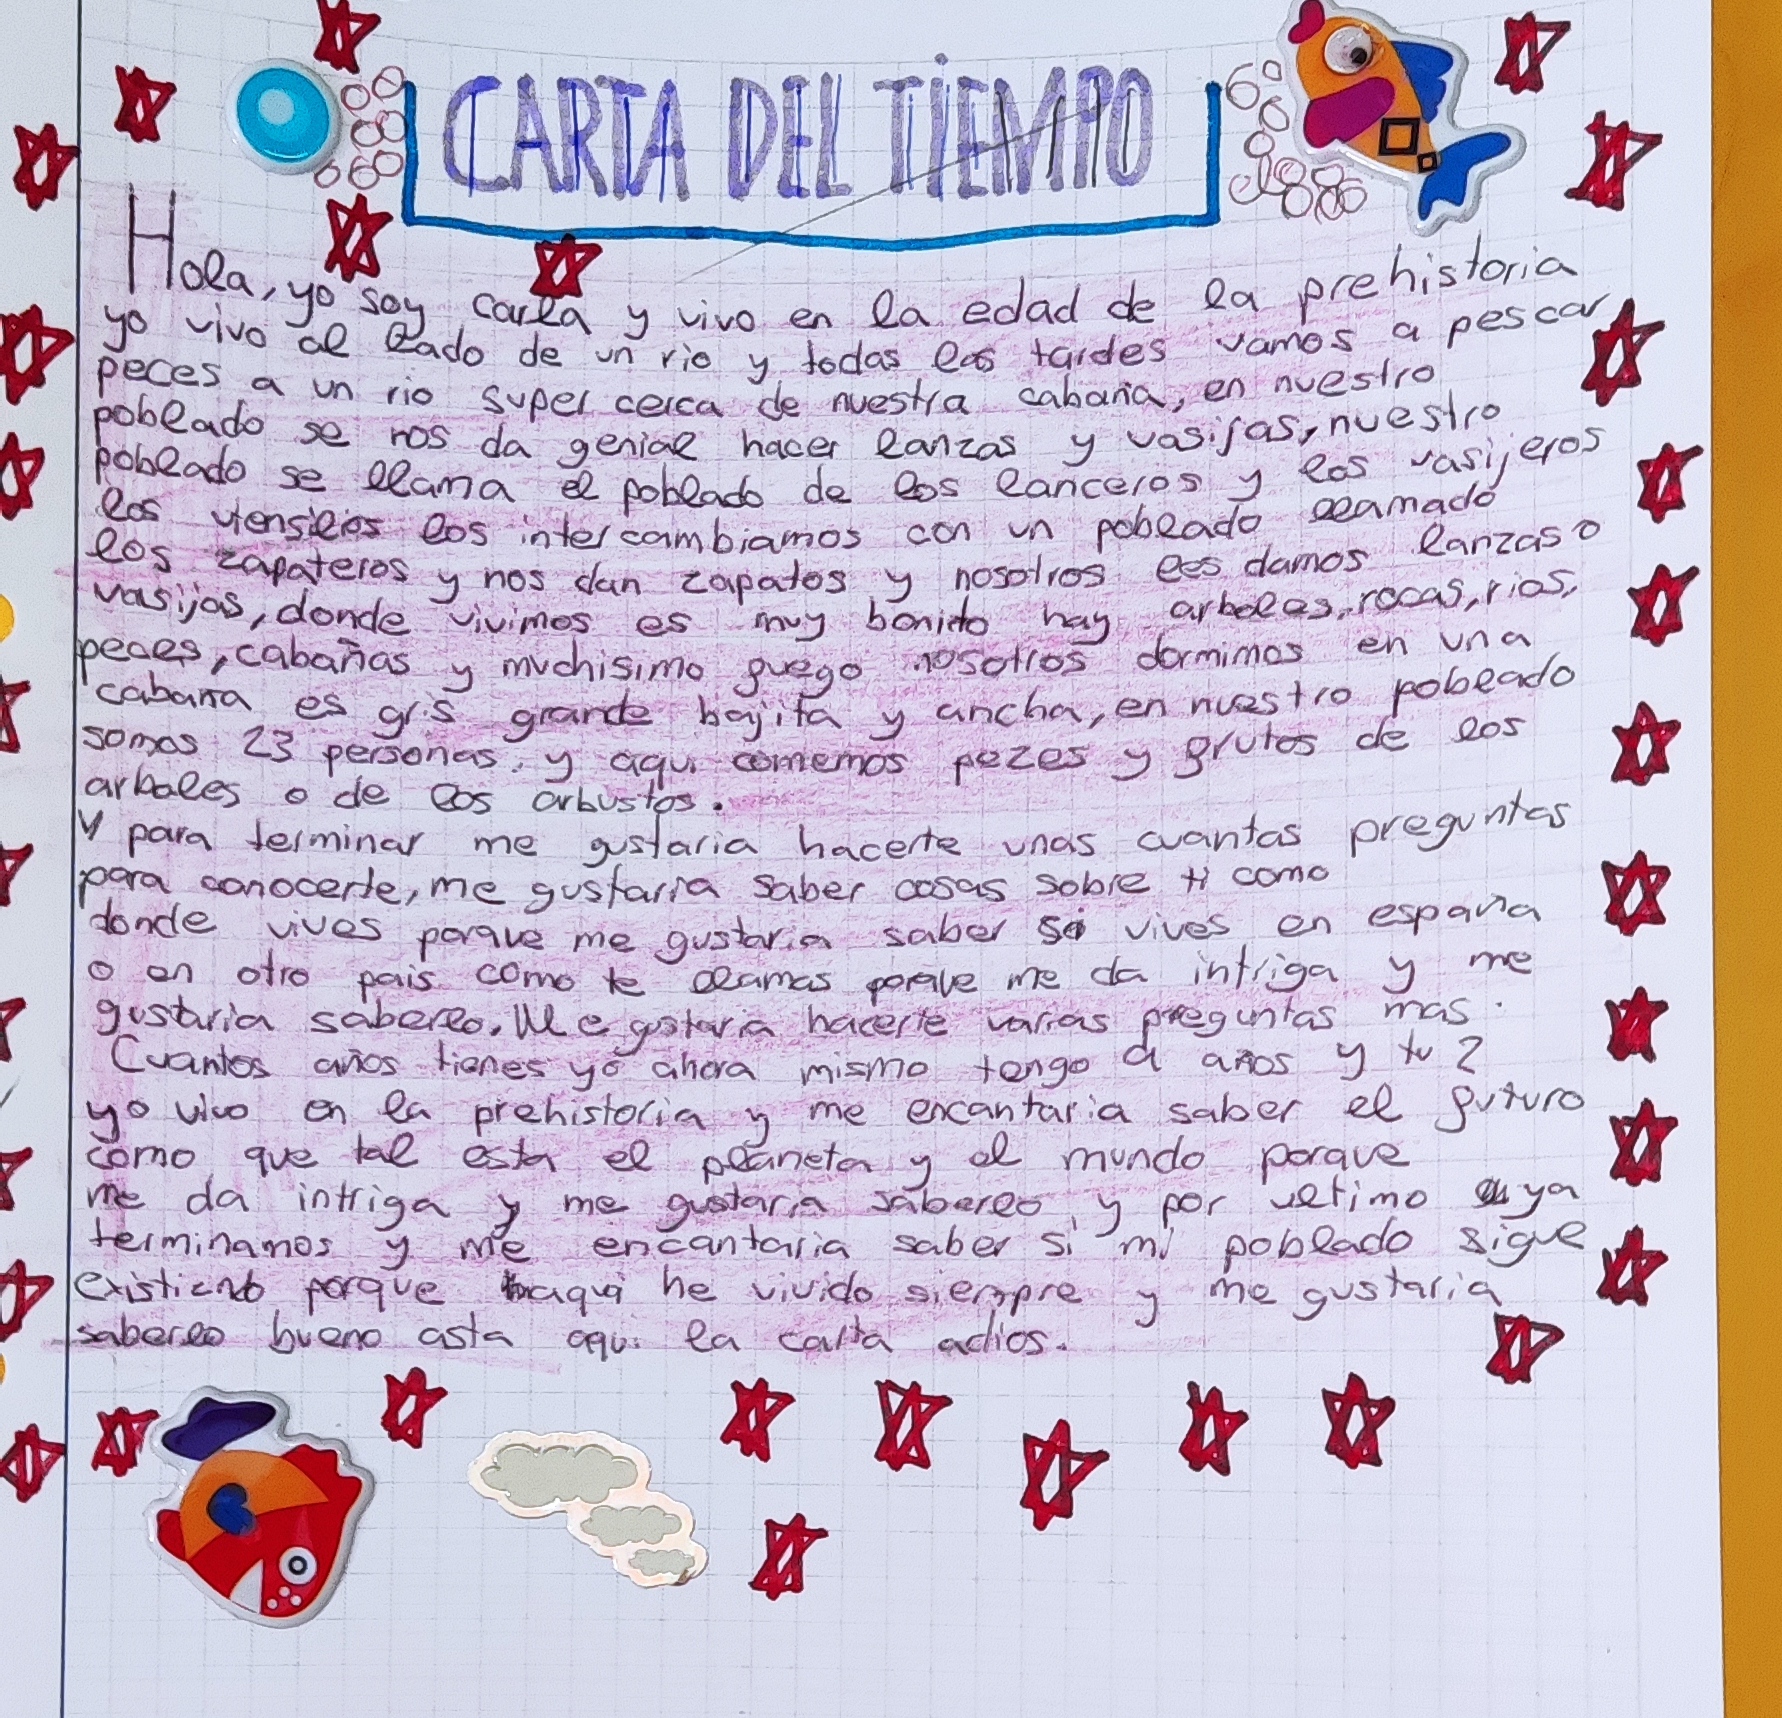 CARTA DEL TIEMPO
Hola, yo soy carla y vivo en la edad de la prehistoria
yo vivo al lado de un rio y todas las tardes vamos a pescar
peces a un rio super cerca de nuestra cabaña, en nuestro
poblado se nos da genial hacer lanzas y vasijas, nuestro
poblado se llama el poblado de los lanceros y los vasijeros
los utensilios los intercambiamos con un poblado llamado
los zapateros y nos dan zapatos y nosotros les damos lanzas o
vasijas, donde vivimos es muy bonito hay arboles, rocas, rios,
peces, cabañas y muchisimo fuego nosotros dormimos en una
cabaña es gris grande bajita y ancha, en nuestro poblado
somos 23 personas. y aqui comemos pezes y frutos de los
arboles o de los arbustos.
Y para terminar me gustaria hacerte unas cuantas preguntas
para conocerte, me gustaria saber cosas sobre ti como
donde vives porque me gustaria saber si vives en españa
o en otro pais como te llamas porque me da intriga y me
gustaria saberlo. Me gustaria hacerte varias preguntas mas.
Cuantos años tienes yo ahora mismo tengo 9 años y tu?
yo vivo en la prehistoria y me encantaria saber el futuro
como que tal esta el planeta y el mundo porque
me da intriga y me gustaria saberlo y por ultimo ya
terminamos y me encantaria saber si mi poblado sigue
existiendo porque aqui he vivido siempre y me gustaria
saberlo bueno asta aqui la carta adios.